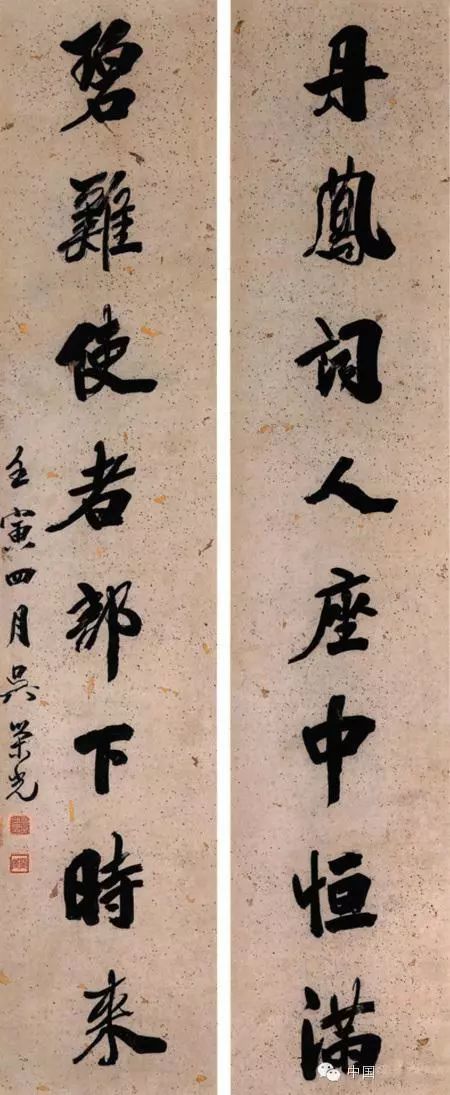 丹鳳詞人座中恒滿
碧雞使者部下時來
壬寅四月吳榮光
中国